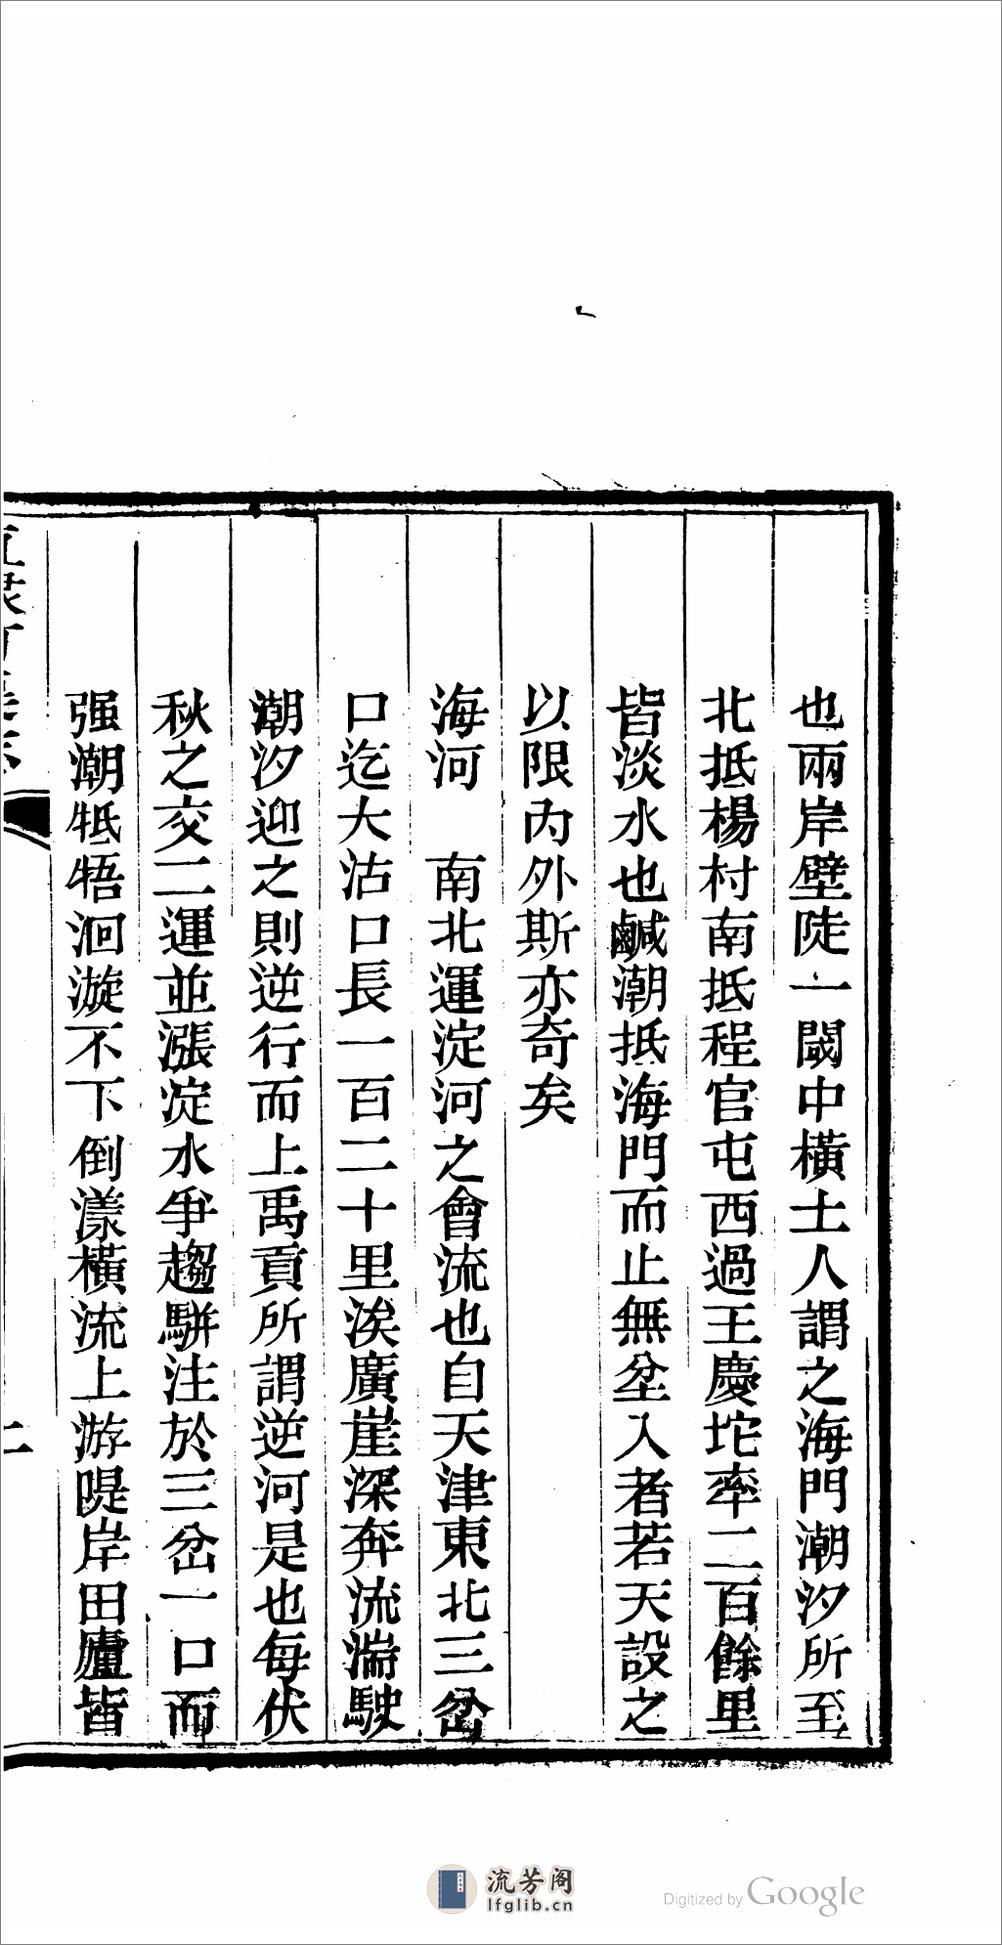 也兩岸壁陡一閾中橫土人謂之海門潮汐所至
北抵楊村南抵程官屯西過王慶坨率二百餘里
皆淡水也鹹潮抵海門而止無坌入者若天設之
以限內外斯亦奇矣
海河　南北運淀河之會流也自天津東北三岔
口迄大沽口長一百二十里涘廣崖深奔流湍駛
潮汐迎之則逆行而上禹貢所謂逆河是也每伏
秋之交二運並漲淀水爭趨駢注於三岔一口而
强潮牴牾洄漩不下倒漾橫流上游隄岸田廬皆
流芳阁
lfglib.cn
Digitized by Google